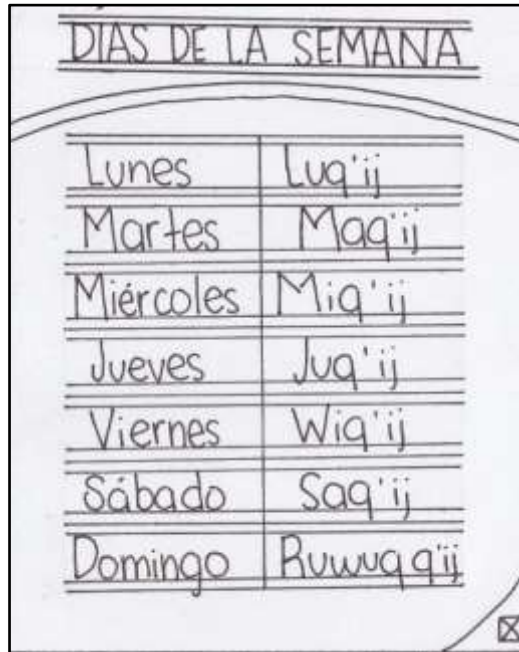 DIAS DE LA SEMANA
Lunes Luq'ij
Martes Maq'ij
Miércoles Miq'ij
Jueves Juq'ij
Viernes Wiq'ij
Sábado Saq'ij
Domingo Ruwuq q'ij